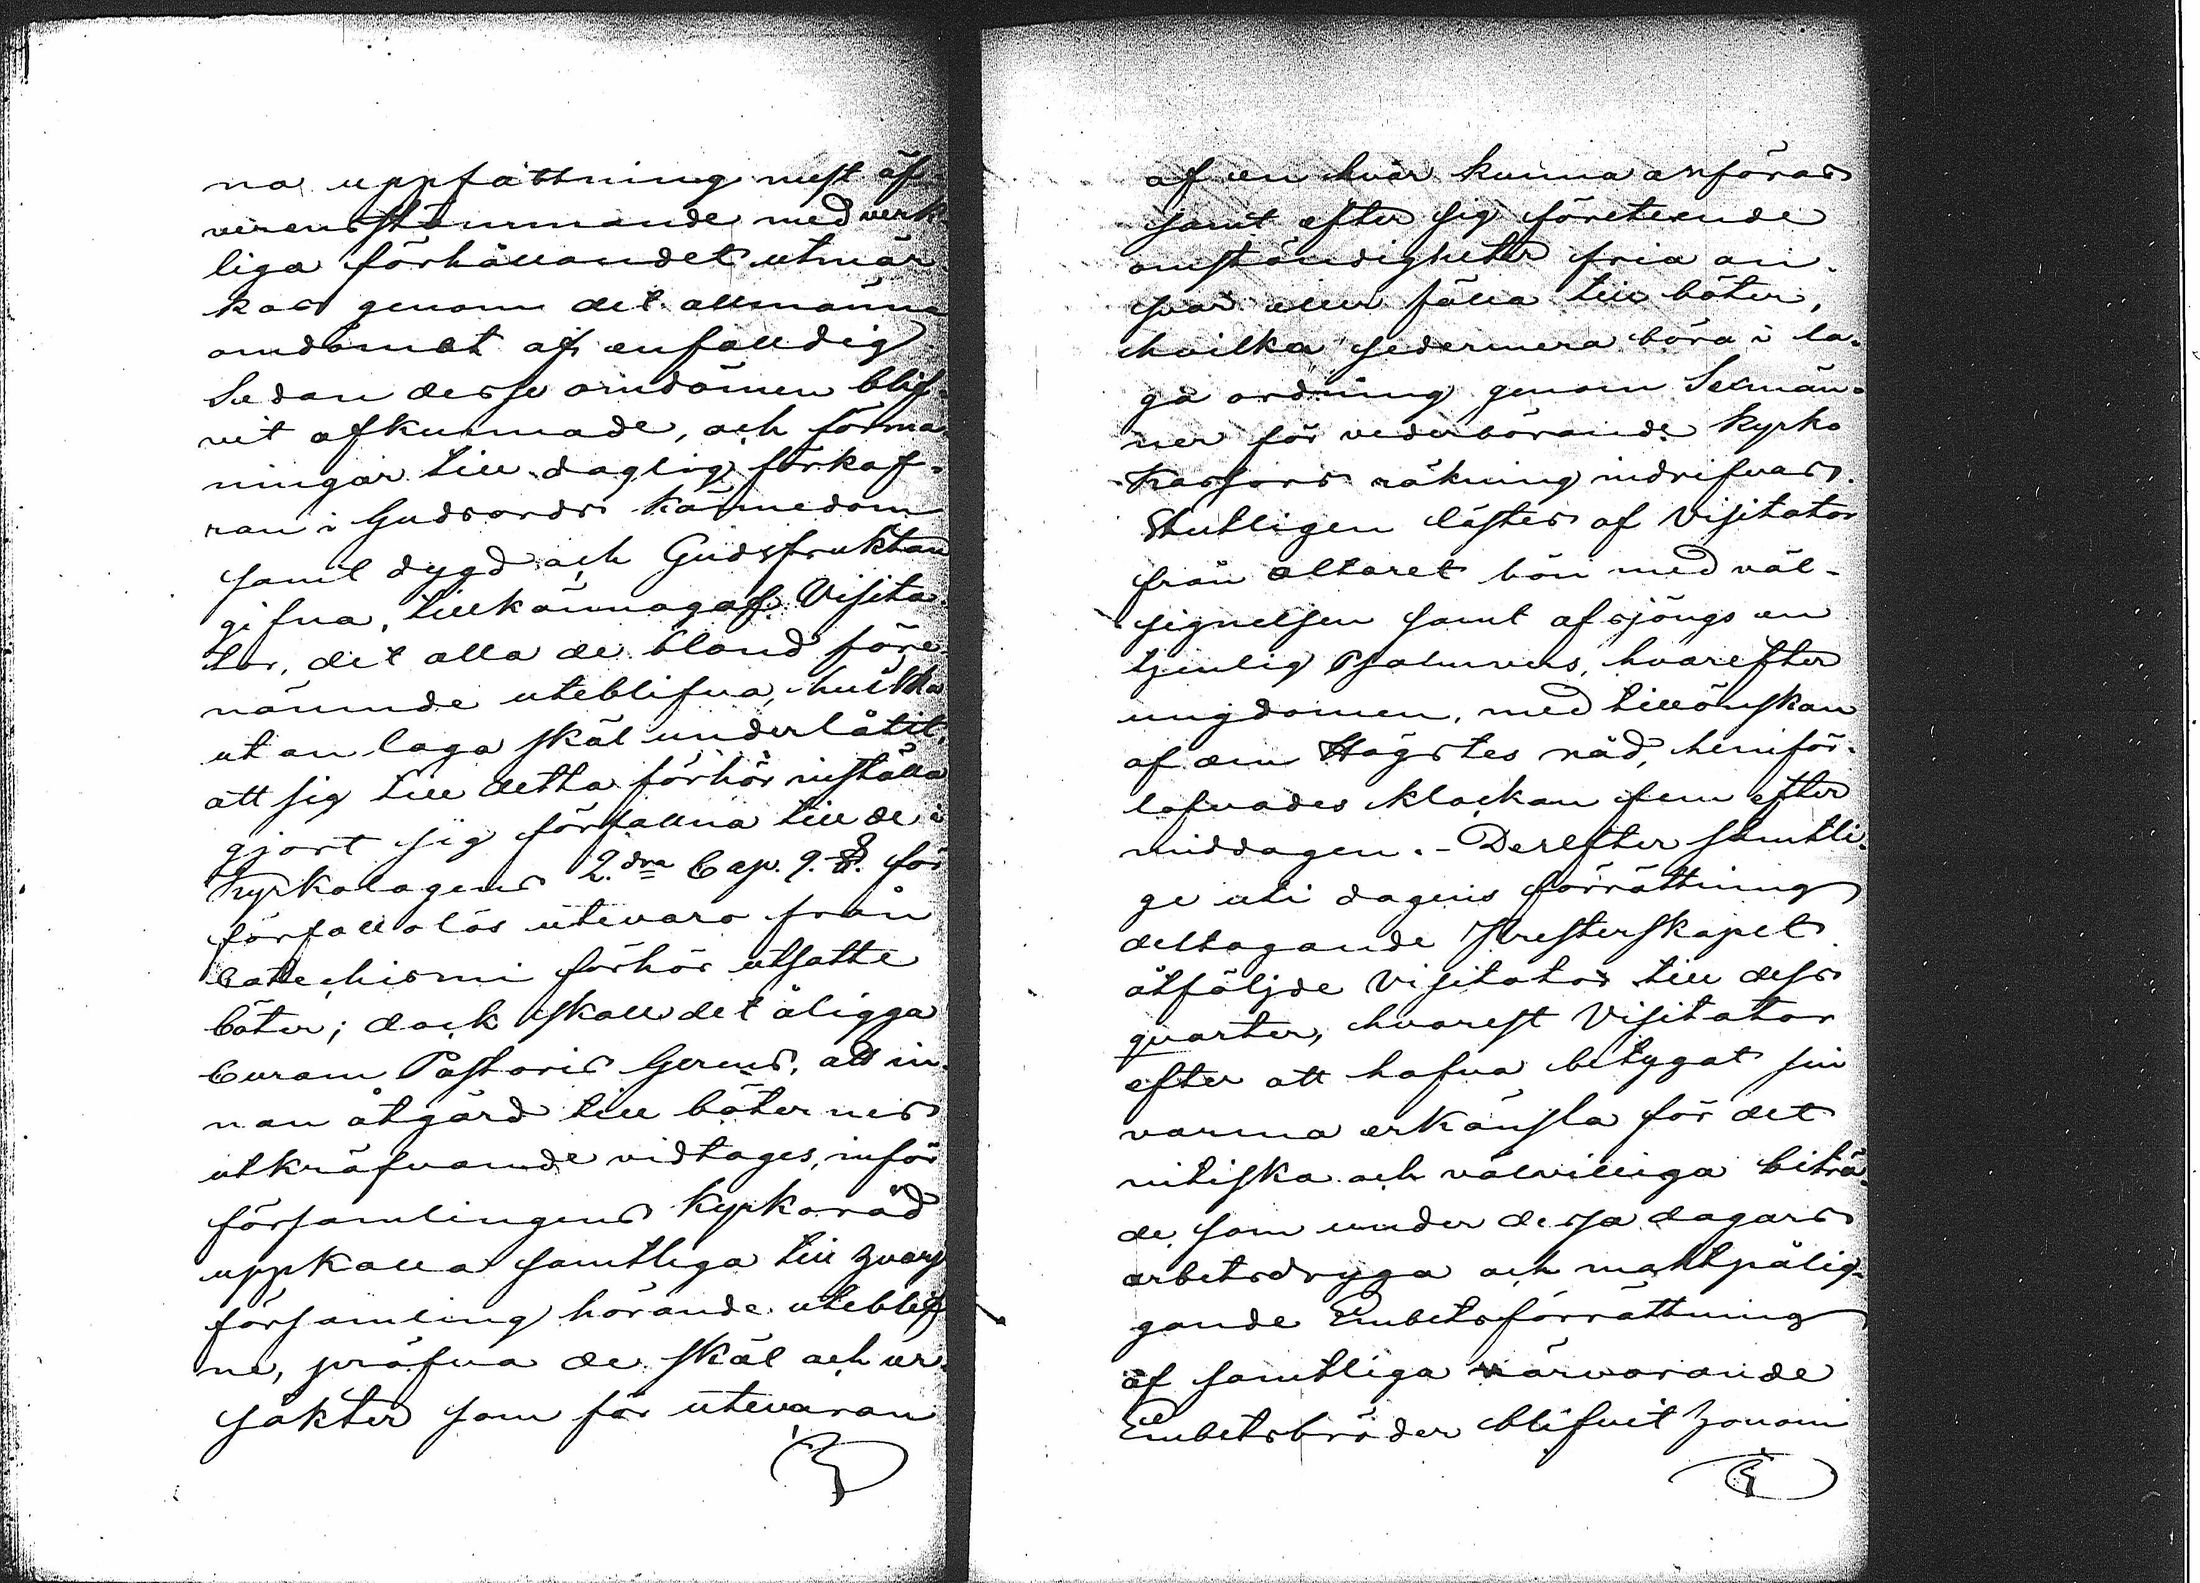 na uppfattning mest öf-
verensstämmande med verk-
liga förhållandet utmär-
kas genom det allmänna
omdömet af enfalldig
Sedan desse omdömen blif-
vit afkunnade, och förma-
ningar till daglig förkof-
ran i Gudsords kännedom
samt dygd och Gudsfruktan
gifna, tillkännagaf Visita-
tor, det alla de bland före-
nämnde uteblifna, hvilka
utan laga skäl underlåtit,
att sig till detta förhör inställa
gjort sig förfallna till de i
Kyrkolagens 2.dra Cap. 9. §. för
förfallolös utevaro från
Catechismi förhör utsatte
böter; dock skall det åligga
Curam Pastoris Gerens, att in-
nan åtgärd till böternes
utkräfvande vidtages, inför
församlingens Kyrkoråd
uppkalla samtliga till hvarje
församling hörande uteblif-
ne, pröfva de skäl och or-
saker som för utevaran
af en hvar kunna anföras
samt efter sig företeende
omständigheter fria an-
svar eller fälla till böter,
hvilka sedermera böra i la-
ga ordning genom Sexmän-
ner för vederbörande Kyrko
Kassors räkning indrifvas.
Slutligen lästes af Visitator
från altaret bön med väl-
signelsen samt afsjöngs en
tjenlig Psalmvers, hvarefter
ungdomen, med tillönskan
af den Högstes nåd, hemför-
lofvades klockan fem efter
middagen. - Derefter samtli-
ge uti dagens förrättning
deltagande Presterskapet
åtföljde Visitator till dess
qvarter, hvarest Visitator
efter att hafva betygat sin
varma erkänsla för det
nitiska och välvilliga biträ-
de, som under dessa dagars
arbetsdryga och maktpålig-
gande Embetsförrättning
af samtliga närvarande
Embetsbröder blifvit honom